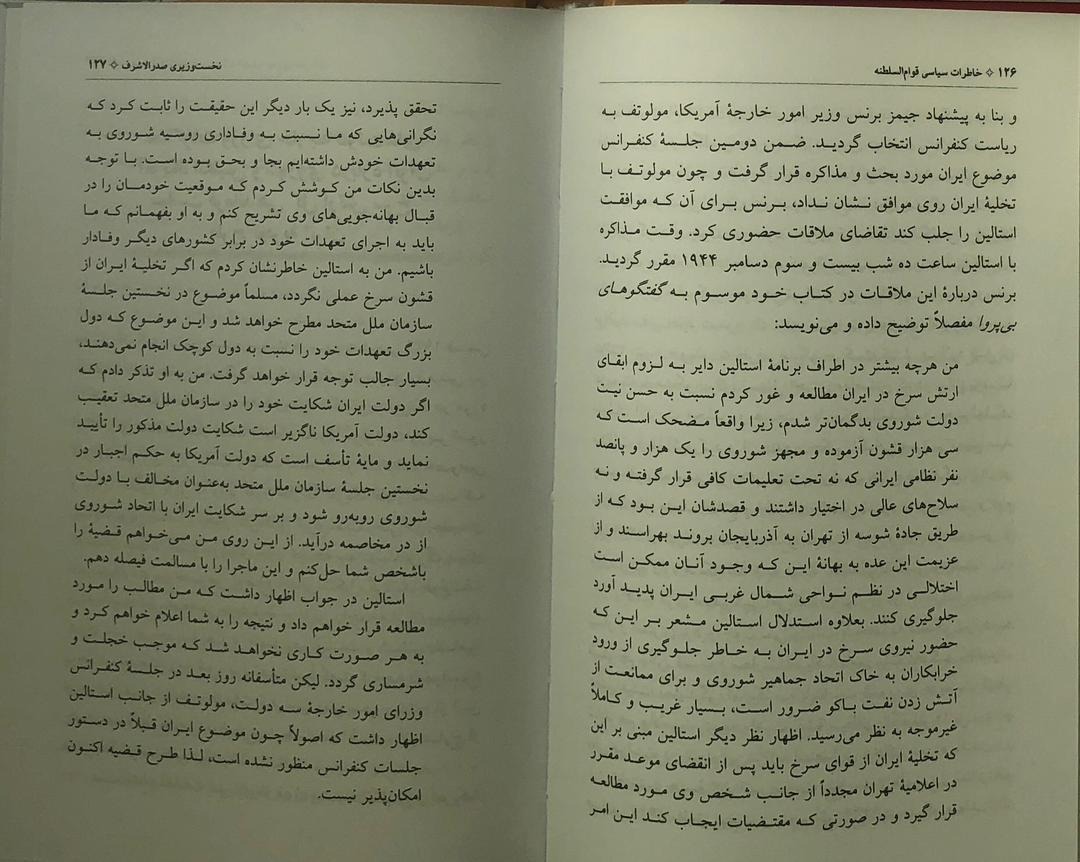 ۱۲۶ ❖ خاطرات سیاسی قوام‌السلطنه
و بنا به پیشنهاد جیمز برنس وزیر امور خارجهٔ آمریکا، مولوتف به
ریاست کنفرانس انتخاب گردید. ضمن دومین جلسهٔ کنفرانس
موضوع ایران مورد بحث و مذاکره قرار گرفت و چون مولوتف با
تخلیهٔ ایران روی موافق نشان نداد، برنس برای آن که موافقت
استالین را جلب کند تقاضای ملاقات حضوری کرد. وقت مذاکره
با استالین ساعت ده شب بیست و سوم دسامبر ۱۹۴۴ مقرر گردید.
برنس دربارهٔ این ملاقات در کتاب خود موسوم به گفتگوهای
بی‌پروا مفصلاً توضیح داده و می‌نویسد:
من هرچه بیشتر در اطراف برنامهٔ استالین دایر به لزوم ابقای
ارتش سرخ در ایران مطالعه و غور کردم نسبت به حسن نیت
دولت شوروی بدگمان‌تر شدم، زیرا واقعاً مضحک است که
سی هزار قشون آزموده و مجهز شوروی را یک هزار و پانصد
نفر نظامی ایرانی که نه تحت تعلیمات کافی قرار گرفته و نه
سلاح‌های عالی در اختیار داشتند و قصدشان این بود که از
طریق جادهٔ شوسه از تهران به آذربایجان بروند بهراسند و از
عزیمت این عده به بهانهٔ این که وجود آنان ممکن است
اختلالی در نظم نواحی شمال غربی ایران پدید آورد
جلوگیری کنند. بعلاوه استدلال استالین مشعر بر این که
حضور نیروی سرخ در ایران به خاطر جلوگیری از ورود
خرابکاران به خاک اتحاد جماهیر شوروی و برای ممانعت از
آتش زدن نفت باکو ضرور است، بسیار غریب و کاملاً
غیرموجه به نظر می‌رسید. اظهار نظر دیگر استالین مبنی بر این
که تخلیهٔ ایران از قوای سرخ باید پس از انقضای موعد مقرر
در اعلامیهٔ تهران مجدداً از جانب شخص وی مورد مطالعه
قرار گیرد و در صورتی که مقتضیات ایجاب کند این امر
نخست‌وزیری صدرالاشرف ❖ ۱۲۷
تحقق پذیرد، نیز یک بار دیگر این حقیقت را ثابت کرد که
نگرانی‌هایی که ما نسبت به وفاداری روسیه شوروی به
تعهدات خودش داشته‌ایم بجا و بحق بوده است. با توجه
بدین نکات من کوشش کردم که موقعیت خودمان را در
قبال بهانه‌جویی‌های وی تشریح کنم و به او بفهمانم که ما
باید به اجرای تعهدات خود در برابر کشورهای دیگر وفادار
باشیم. من به استالین خاطرنشان کردم که اگر تخلیهٔ ایران از
قشون سرخ عملی نگردد، مسلماً موضوع در نخستین جلسهٔ
سازمان ملل متحد مطرح خواهد شد و این موضوع که دول
بزرگ تعهدات خود را نسبت به دول کوچک انجام نمی‌دهند،
بسیار جالب توجه قرار خواهد گرفت. من به او تذکر دادم که
اگر دولت ایران شکایت خود را در سازمان ملل متحد تعقیب
کند، دولت آمریکا ناگزیر است شکایت دولت مذکور را تأیید
نماید و مایهٔ تأسف است که دولت آمریکا به حکم اجبار در
نخستین جلسهٔ سازمان ملل متحد به‌عنوان مخالف با دولت
شوروی روبه‌رو شود و بر سر شکایت ایران با اتحاد شوروی
از در مخاصمه درآید. از این روی من می‌خواهم قضیهٔ را
باشخص شما حل‌کنم و این ماجرا را با مسالمت فیصله دهم.
استالین در جواب اظهار داشت که من مطالب را مورد
مطالعه قرار خواهم داد و نتیجه را به شما اعلام خواهم کرد و
به هر صورت کاری نخواهد شد که موجب خجلت و
شرمساری گردد. لیکن متأسفانه روز بعد در جلسهٔ کنفرانس
وزرای امور خارجهٔ سه دولت، مولوتف از جانب استالین
اظهار داشت که اصولاً چون موضوع ایران قبلاً در دستور
جلسات کنفرانس منظور نشده است، لذا طرح قضیه اکنون
امکان‌پذیر نیست.